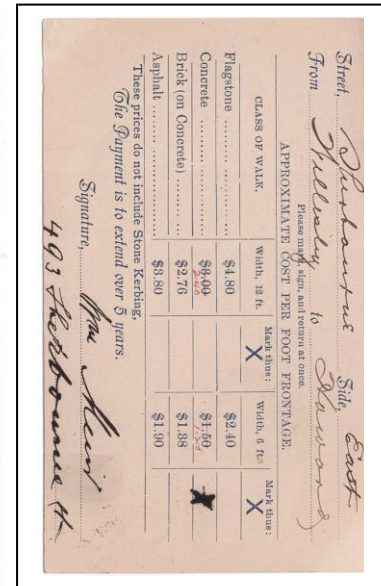 Street, Sherbourne Side, East
From Wellesley to Howard
Please mark, sign, and return at once.
APPROXIMATE COST PER FOOT FRONTAGE.
CLASS OF WALK. Width, 12 ft. Mark thus: X Width, 6 ft. Mark thus: X
Flagstone $4.80 $2.40
Concrete $3.00 2.40 $1.50 1.20 X
Brick (on Concrete) $2.76 $1.38
Asphalt $3.80 $1.90
These prices do not include Stone Kerbing,
The Payment is to extend over 5 years.
Signature, Wm Muir
493 Sherbourne St